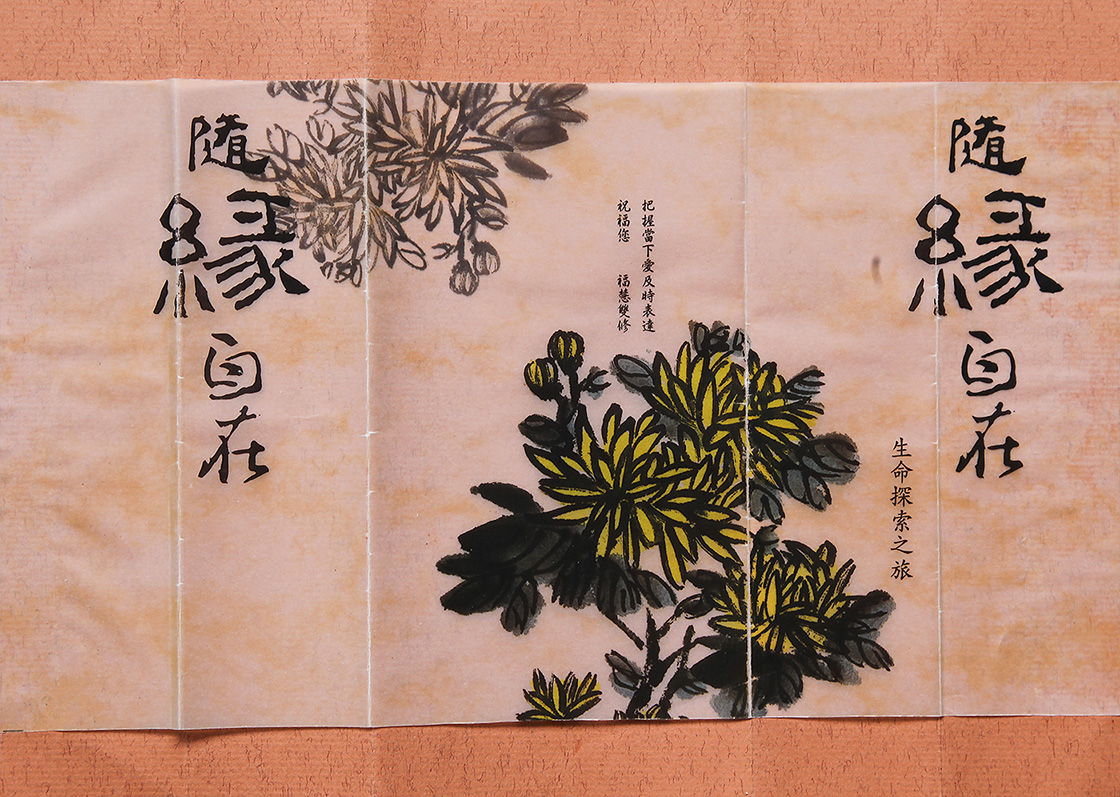 隨緣自在
生命探索之旅
把握當下愛及時表達
祝福您 福慧雙修
隨緣自在